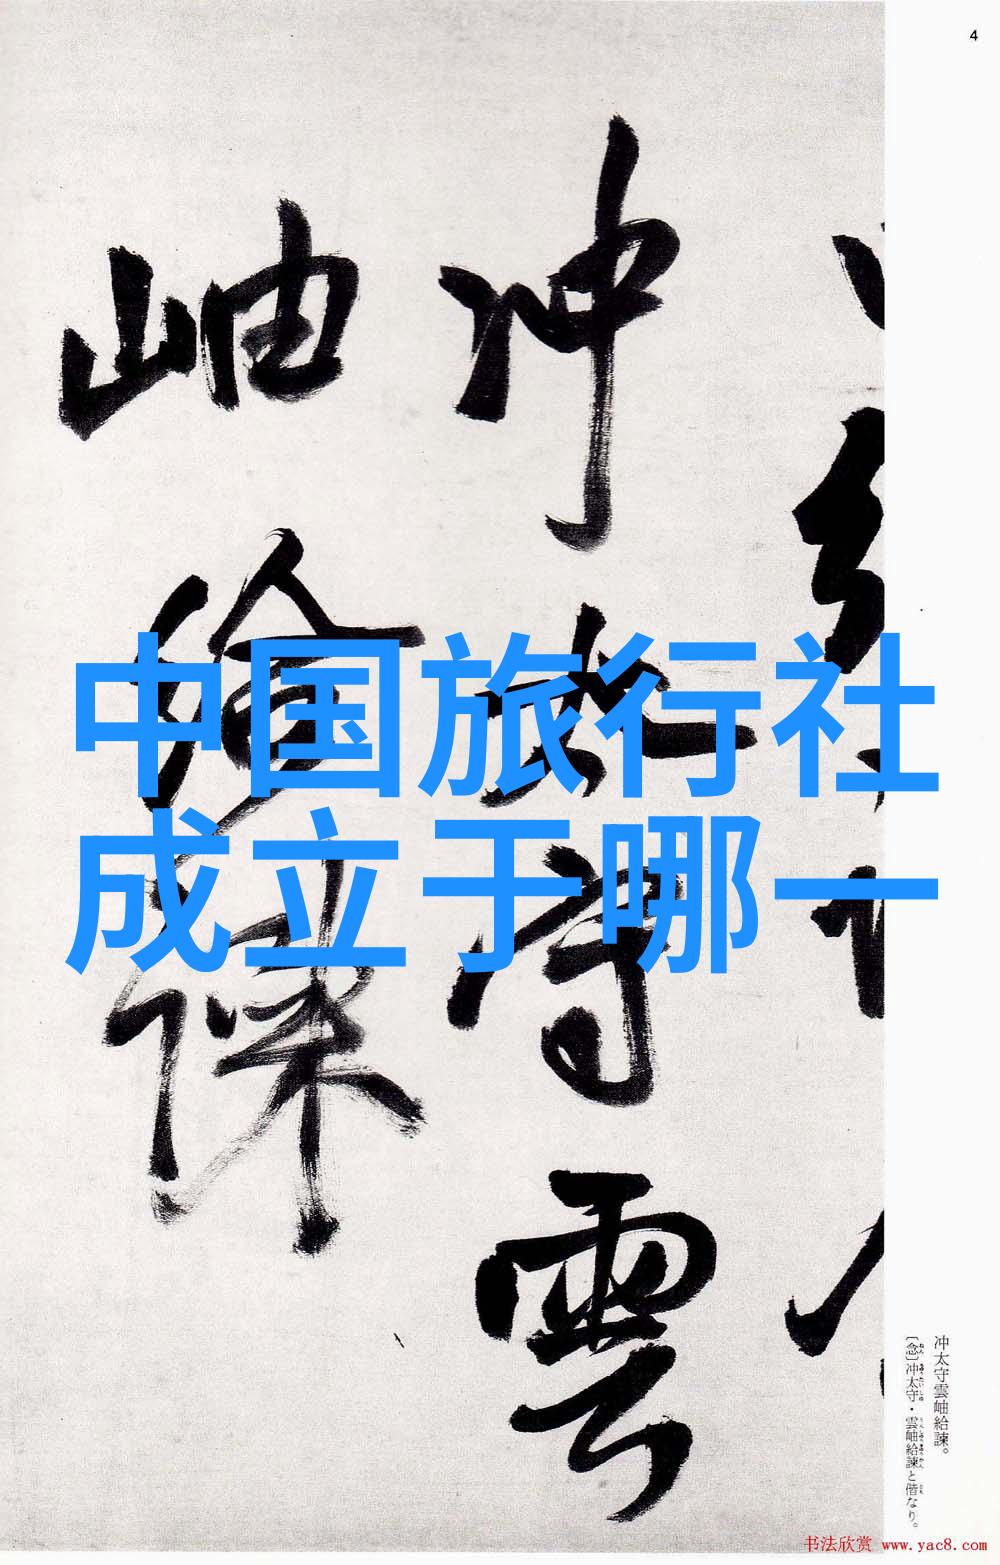 4
中国旅行社
成立于哪一
冲太守雲
岫給諫
冲太守雲岫給諫。
〔念〕冲太守・雲岫給諫と偕なり。
书法欣赏 www.yac8.com